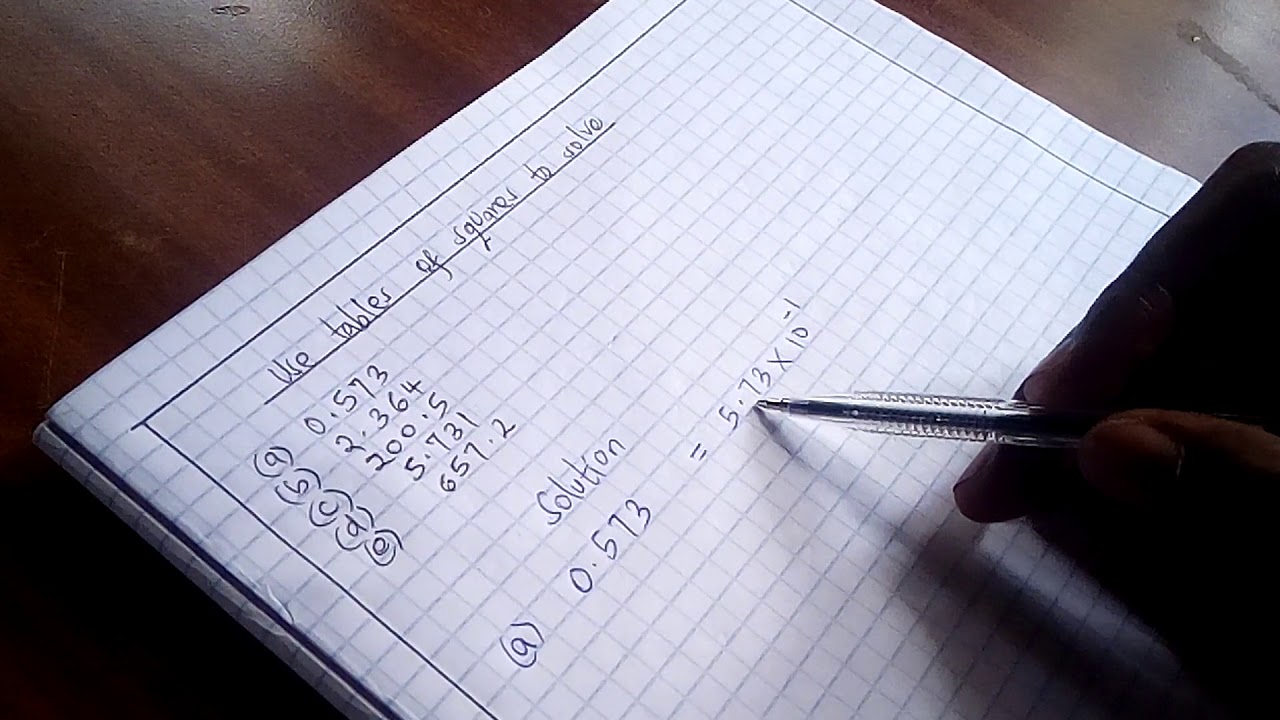 Use tables of squares to solve
(a) 0.573
(b) 2.364
(c) 200.5
(d) 5.731
(e) 657.2
Solution
(a) 0.573 = 5.73 × 10⁻¹